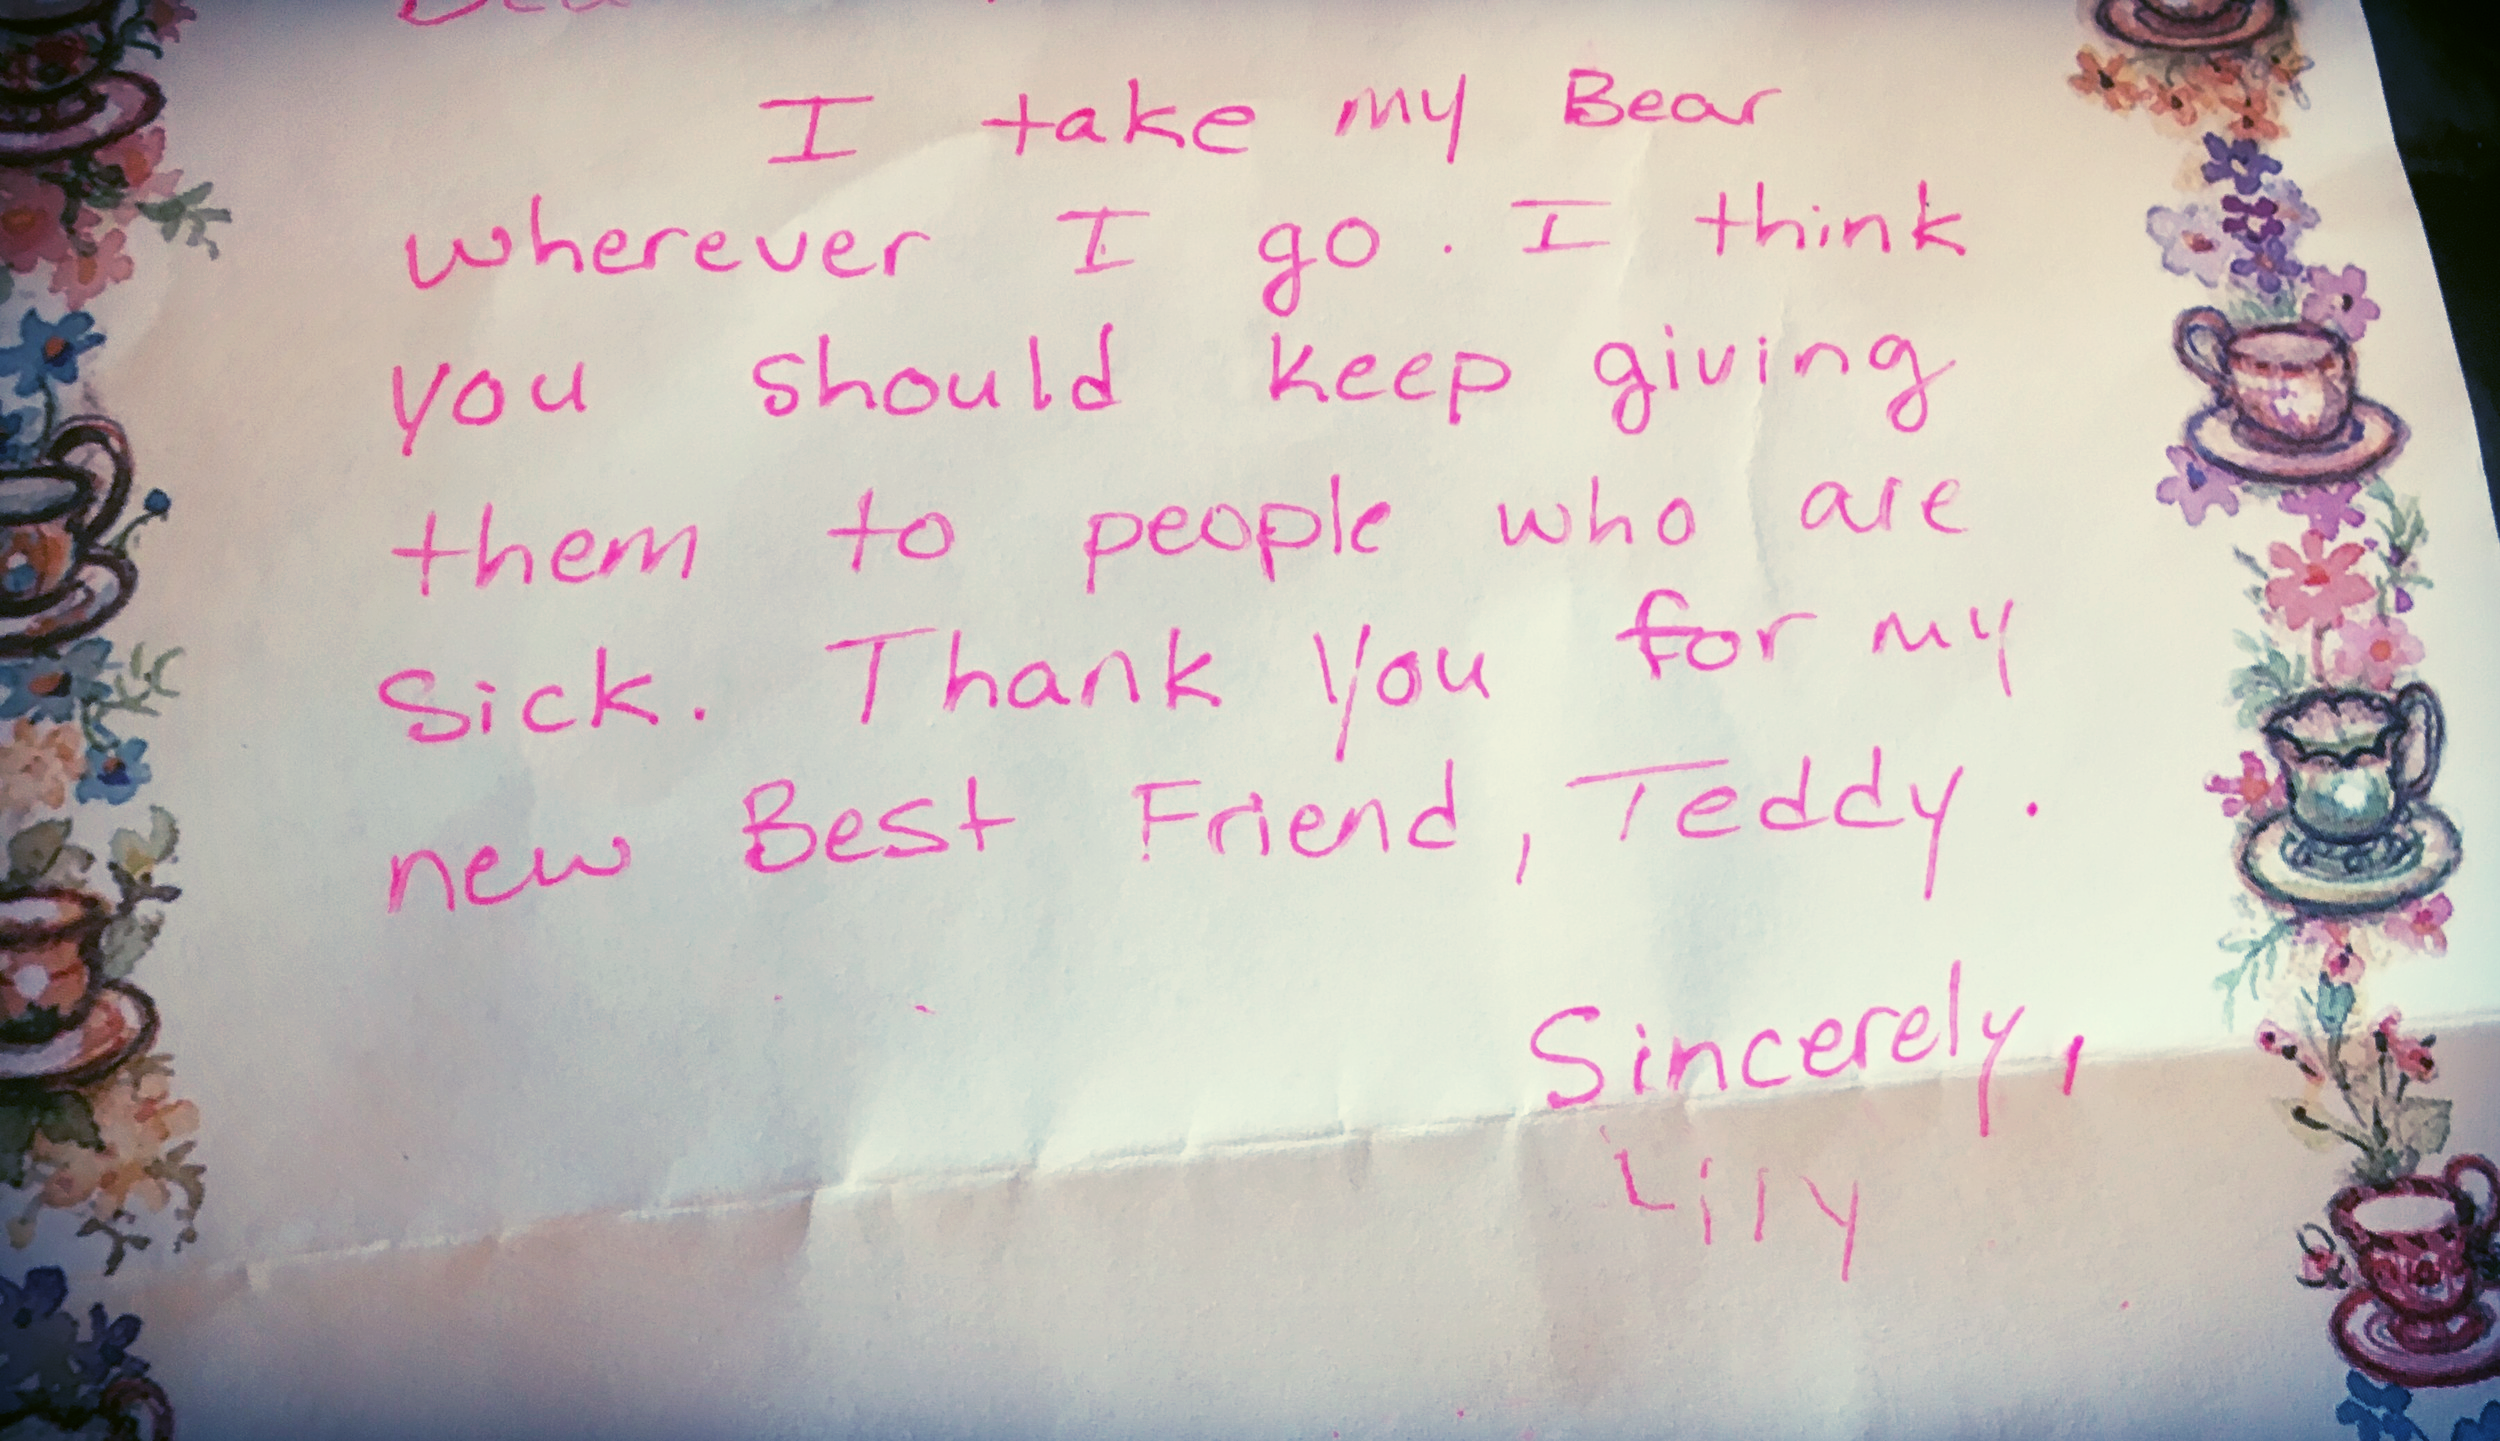 I take my Bear
wherever I go. I think
you should keep giving
them to people who are
Sick. Thank You for my
new Best Friend, Teddy.
Sincerely,
Lily